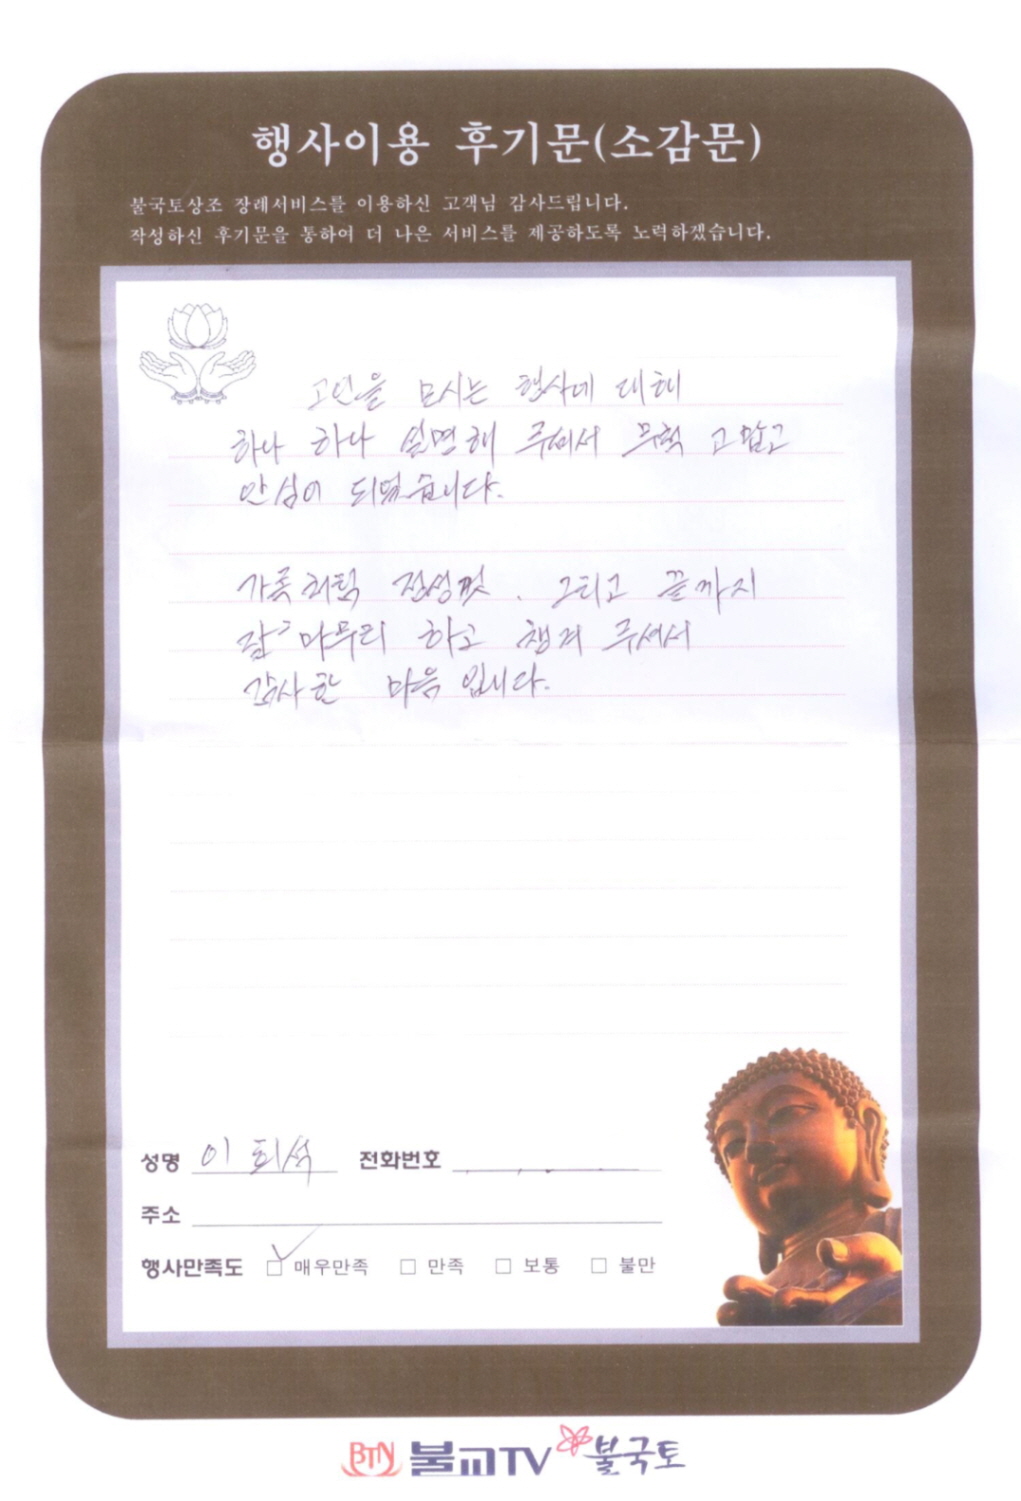 행사이용 후기문(소감문)
불국토상조 장례서비스를 이용하신 고객님 감사드립니다.
작성하신 후기문을 통하여 더 나은 서비스를 제공하도록 노력하겠습니다.
고인을 모시는 행사에 대해
하나 하나 설명해 주셔서 무척 고맙고
안심이 되었습니다.
가족처럼 정성껏. 그리고 끝까지
잘 마무리 하고 챙겨 주셔서
감사한 마음 입니다.
성명 이희석 전화번호
주소
행사만족도 매우만족 만족 보통 불만
BTN 불교TV 불국토